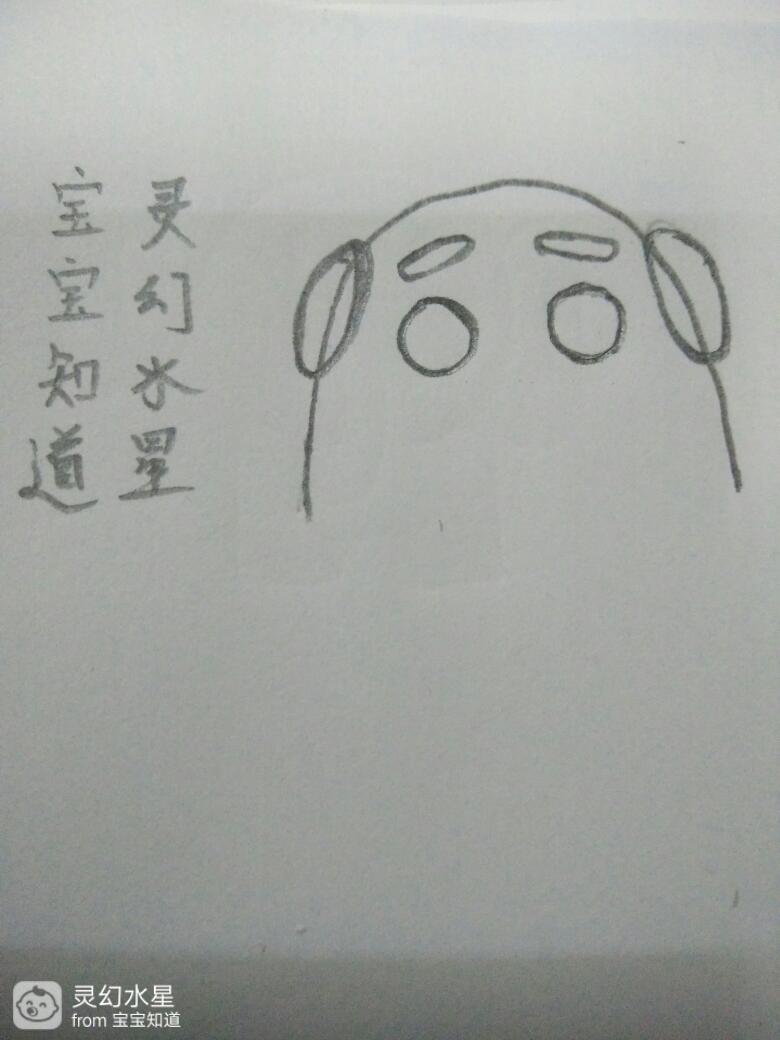 灵幻水星
宝宝知道
灵幻水星
from 宝宝知道